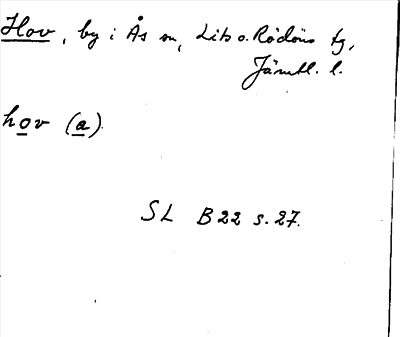 Hov, by i Ås sn, Lits o. Rödöns tg,
Jämtl. l.
hov (a).
SL B22 s. 27.